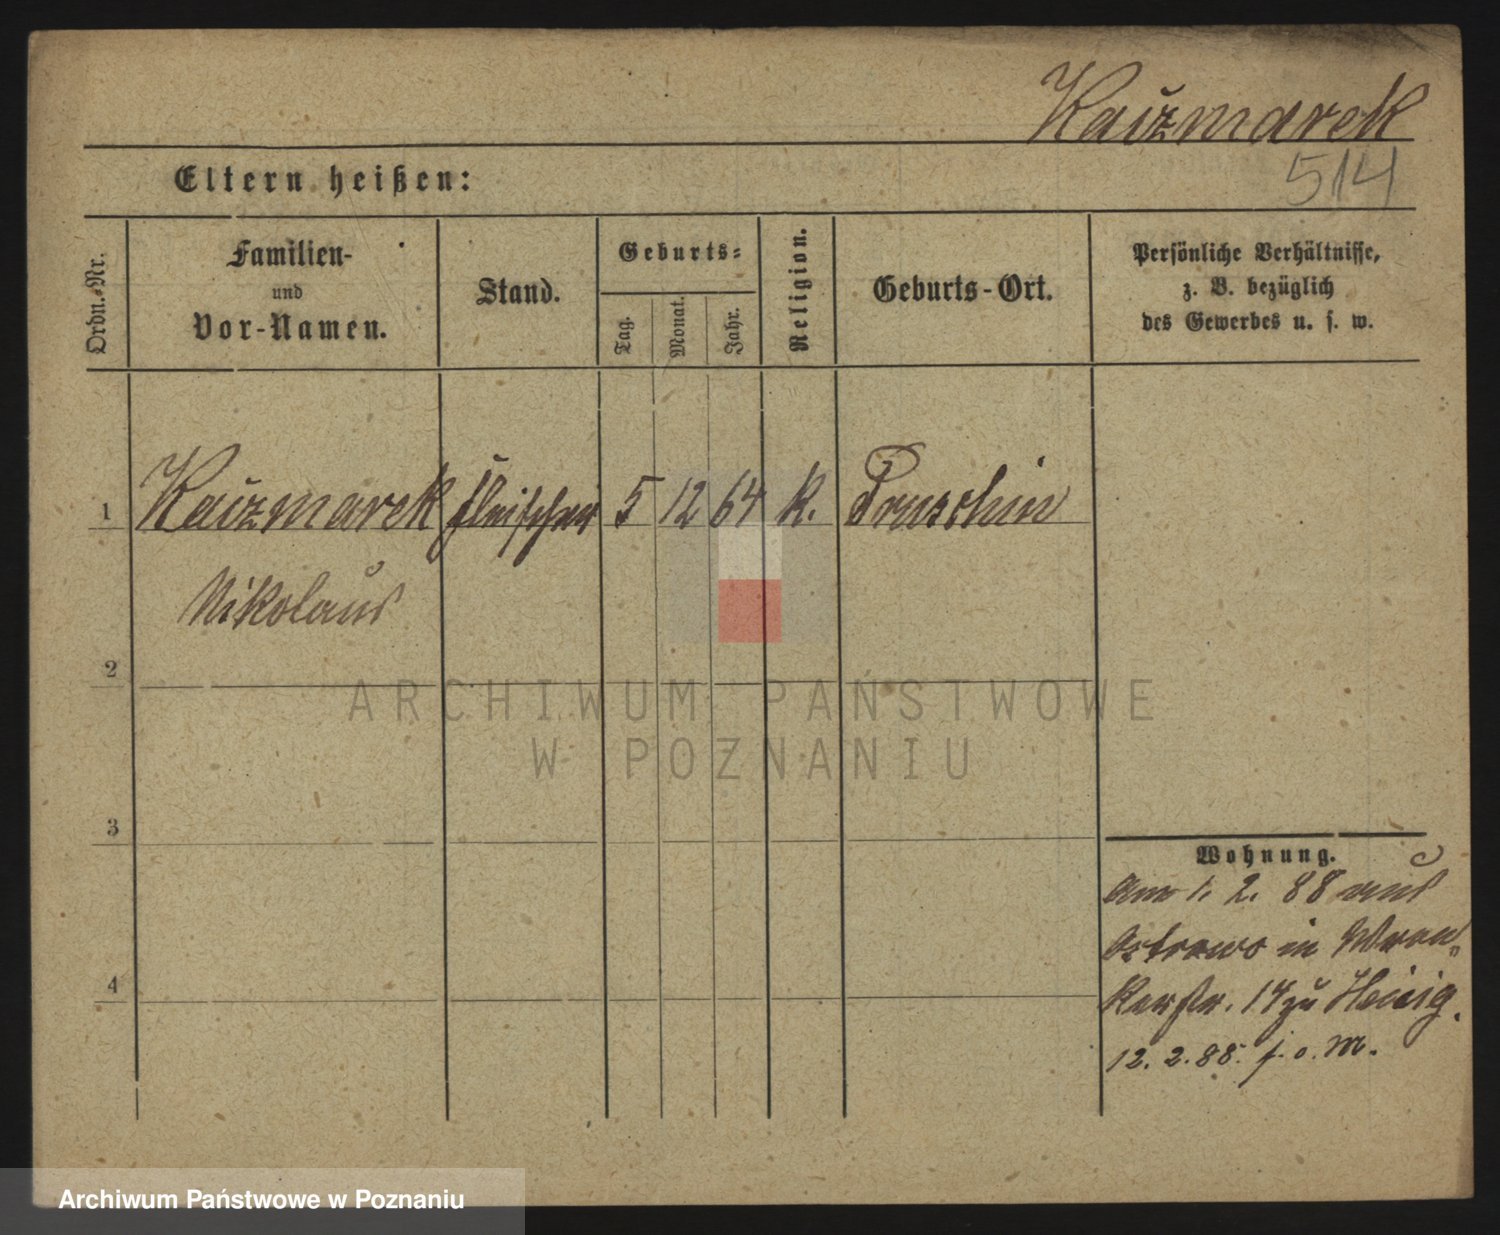 Kaczmarek
514
Eltern heißen:
Ordn.-Nr.
Familien-
und
Vor-Namen.
Stand.
Geburts-
Tag.
Monat.
Jahr.
Religion.
Geburts-Ort.
Persönliche Verhältnisse,
z. B. bezüglich
des Gewerbes u. s. w.
1 Kaczmarek Fleischer 5 12 64 K. Pruschin
Nikolaus
2
3
4
Wohnung.
Am 1. 2. 88 aus
Ostrowo in Wron-
kerstr. 17 zu
12. 2. 88. f. o. M.
ARCHIWUM PAŃSTWOWE
W POZNANIU
Archiwum Państwowe w Poznaniu